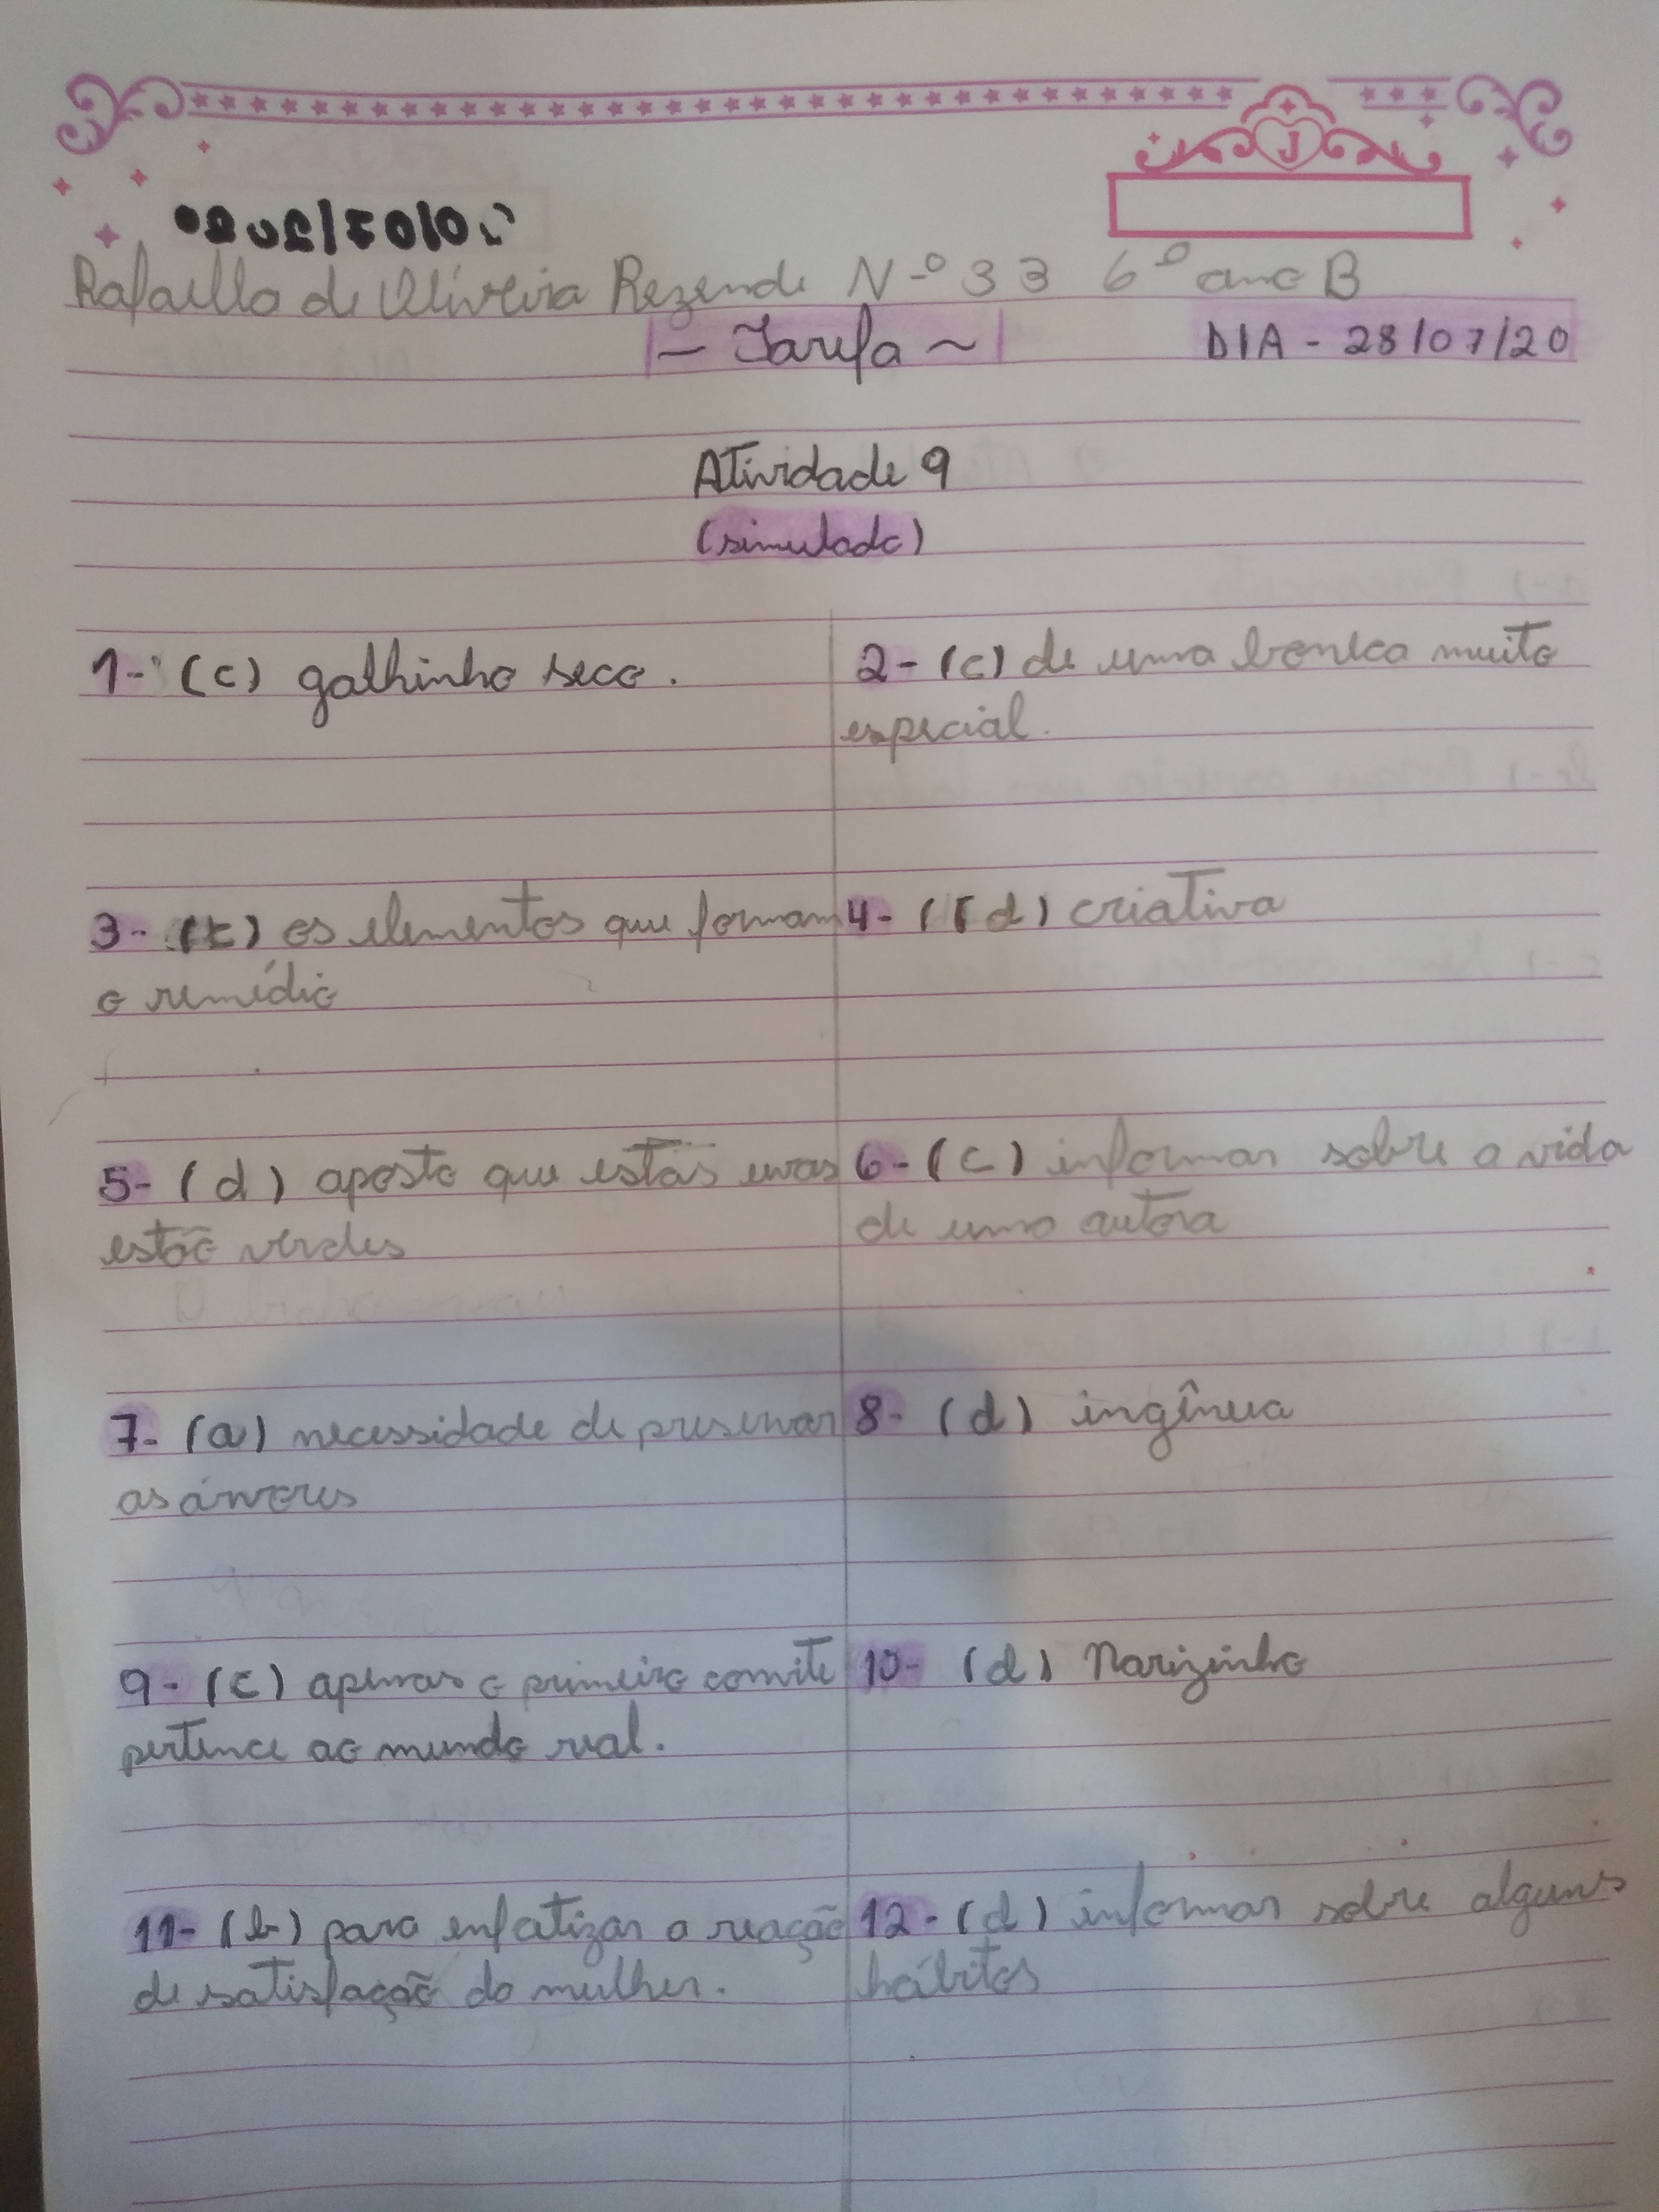 J
Rafaella de Oliveira Rezende Nº 33 6º ano B
- Tarefa ~
DIA - 28/07/20
Atividade 9
(simulado)
1- (c) galhinho seco.
2- (c) de uma boneca muito
especial.
3- (c) os elementos que formam
o remédio
4- (d) criativa
5- (d) aposto que estás uvas
estão verdes
6- (c) informar sobre a vida
de uma autora
7- (a) necessidade de preservar
as árvores
8- (d) ingênua
9- (c) apenas o primeiro convite
pertence ao mundo real.
10- (d) Narizinho
11- (b) para enfatizar a reação
de satisfação da mulher.
12- (d) informar sobre alguns
hábitos